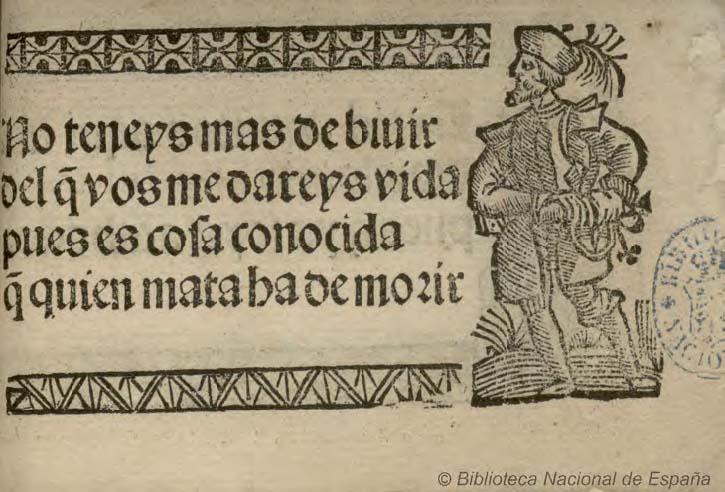 No teneys mas de biuir
del q̃ vos me dareys vida
pues es cosa conocida
q̃ quien mata ha de morir
© Biblioteca Nacional de España